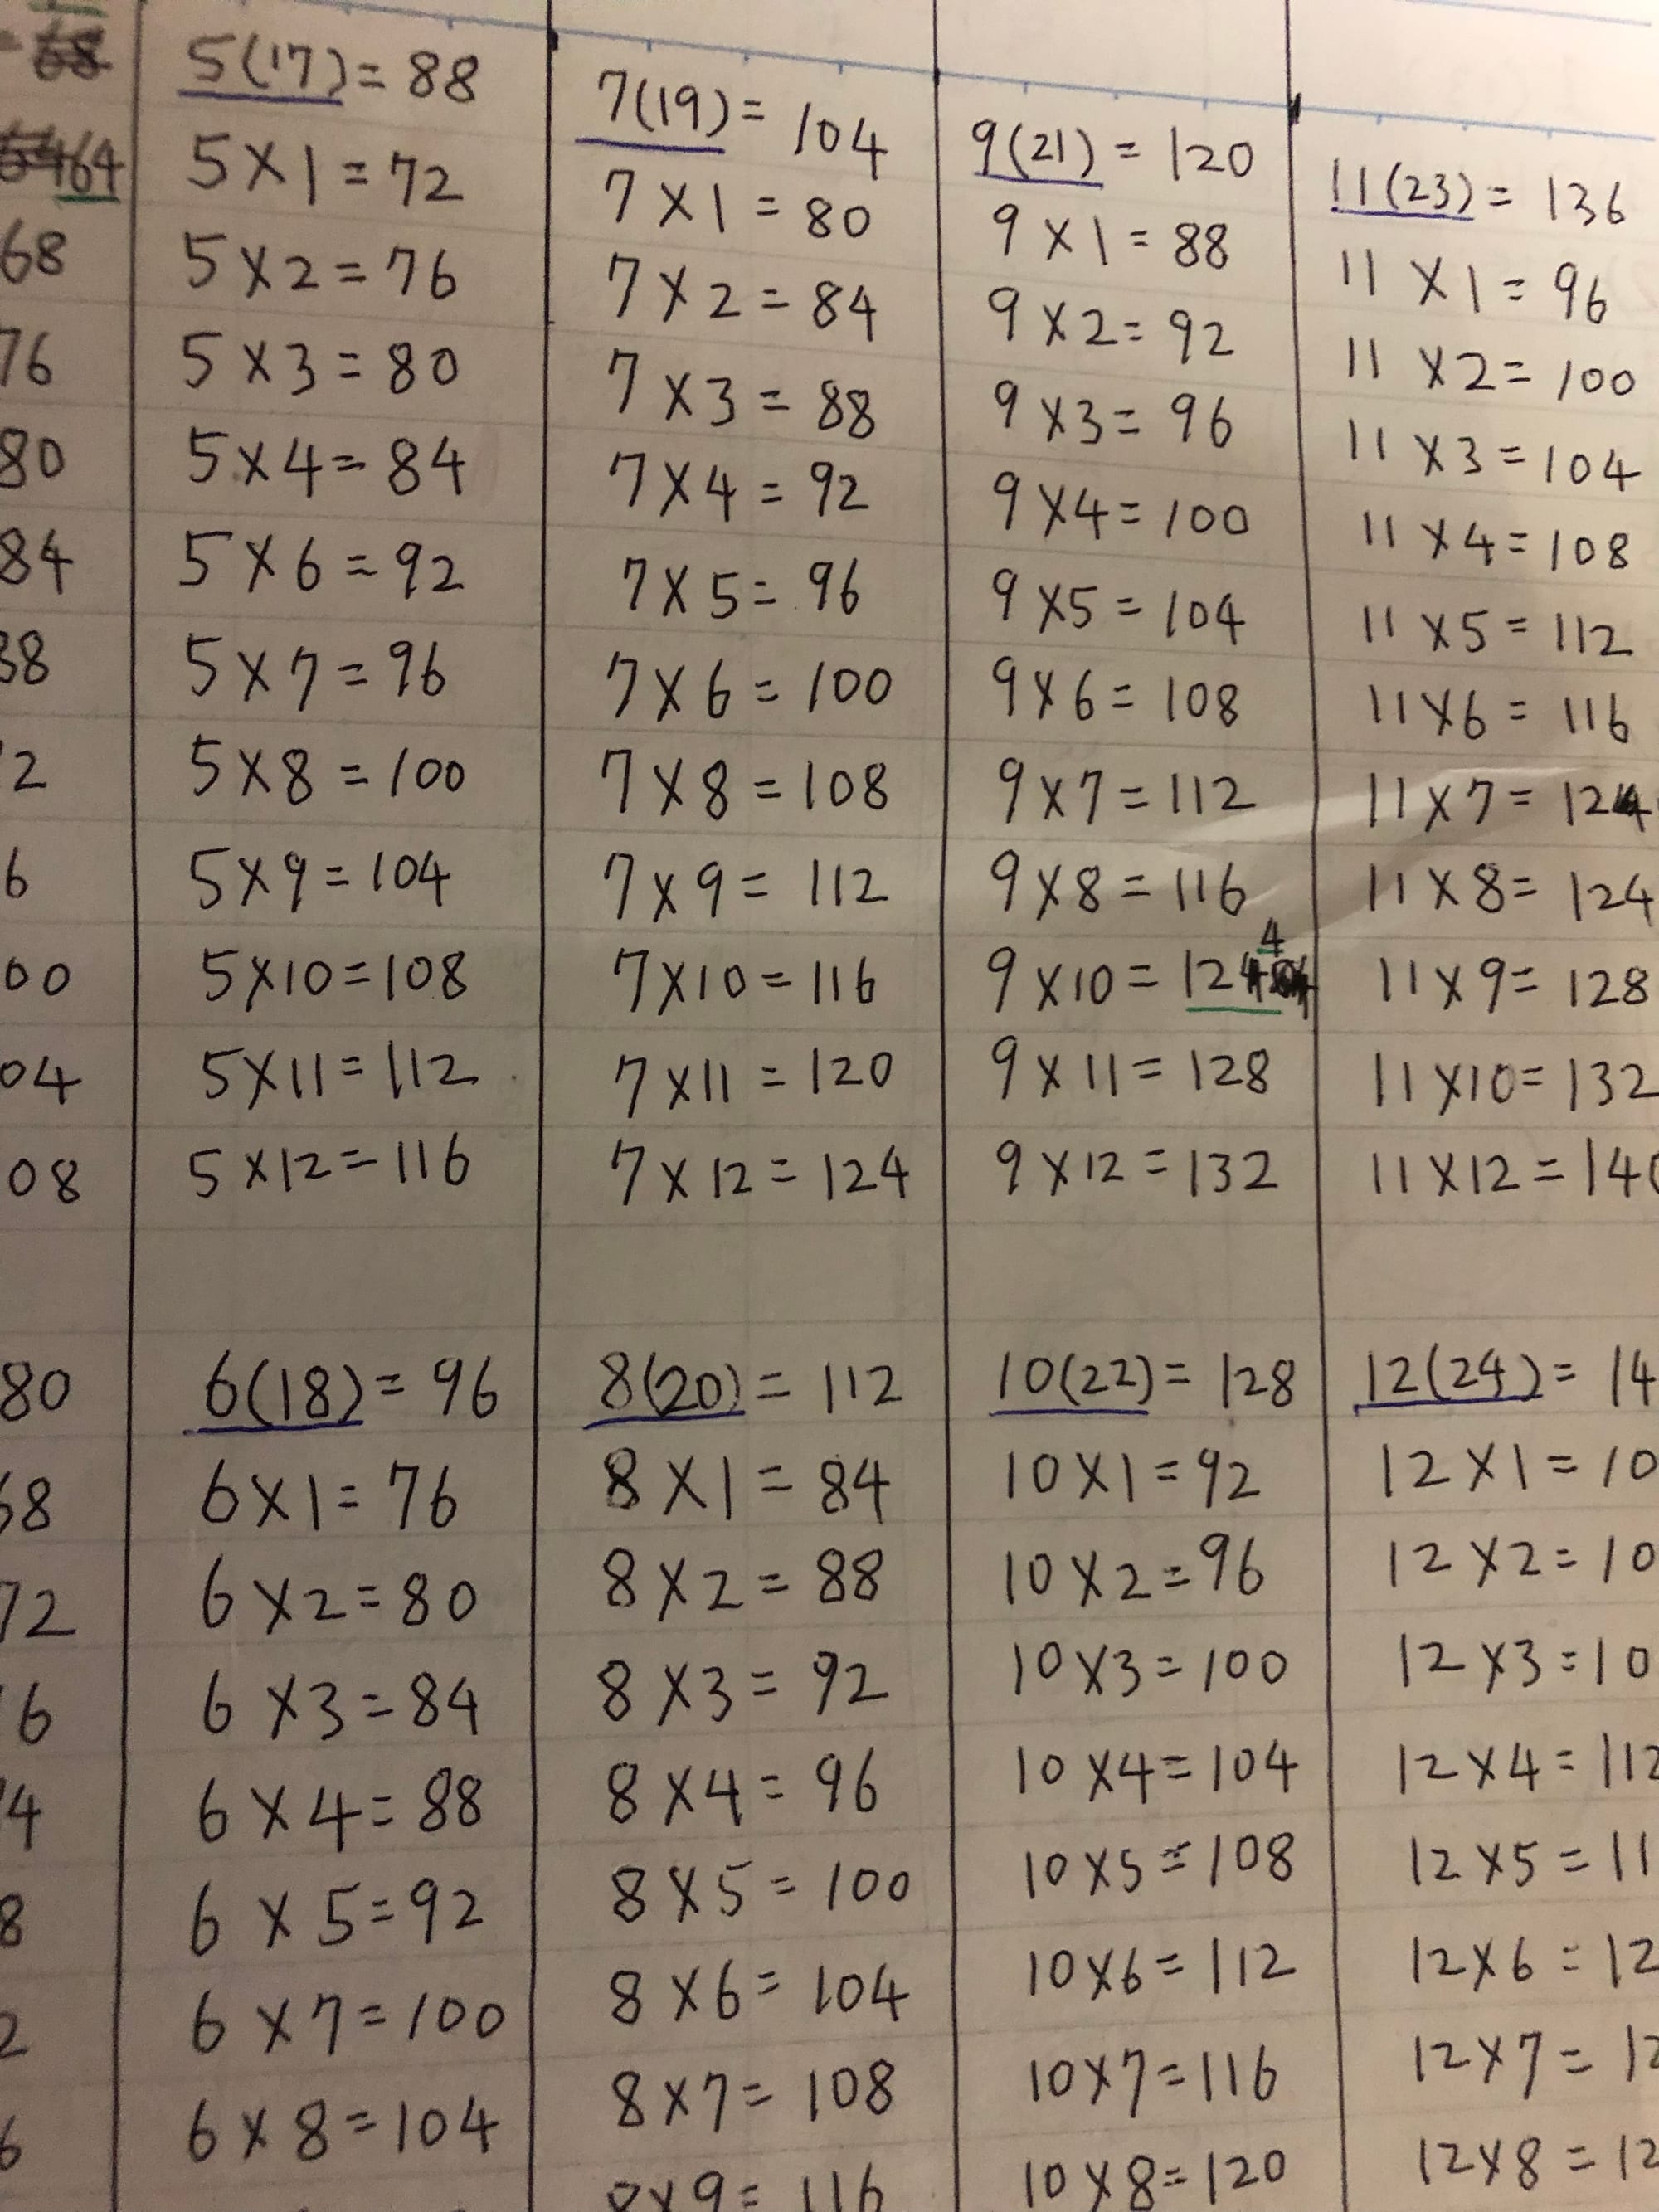 68
64
68
76
80
84
88
00
04
08
5(17)=88
5×1=72
5×2=76
5×3=80
5×4=84
5×6=92
5×7=96
5×8=100
5×9=104
5×10=108
5×11=112
5×12=116
7(19)=104
7×1=80
7×2=84
7×3=88
7×4=92
7×5=96
7×6=100
7×8=108
7×9=112
7×10=116
7×11=120
7×12=124
9(21)=120
9×1=88
9×2=92
9×3=96
9×4=100
9×5=104
9×6=108
9×7=112
9×8=116
4
9×10=124
9×11=128
9×12=132
11(23)=136
11×1=96
11×2=100
11×3=104
11×4=108
11×5=112
11×6=116
11×7=124
11×8=124
11×9=128
11×10=132
11×12=140
80
68
72
6(18)=96
6×1=76
6×2=80
6×3=84
6×4=88
6×5=92
6×7=100
6×8=104
8(20)=112
8×1=84
8×2=88
8×3=92
8×4=96
8×5=100
8×6=104
8×7=108
8×9=116
10(22)=128
10×1=92
10×2=96
10×3=100
10×4=104
10×5=108
10×6=112
10×7=116
10×8=120
12(24)=14
12×1=10
12×2=10
12×3=10
12×4=112
12×5=11
12×6=12
12×7=12
12×8=12